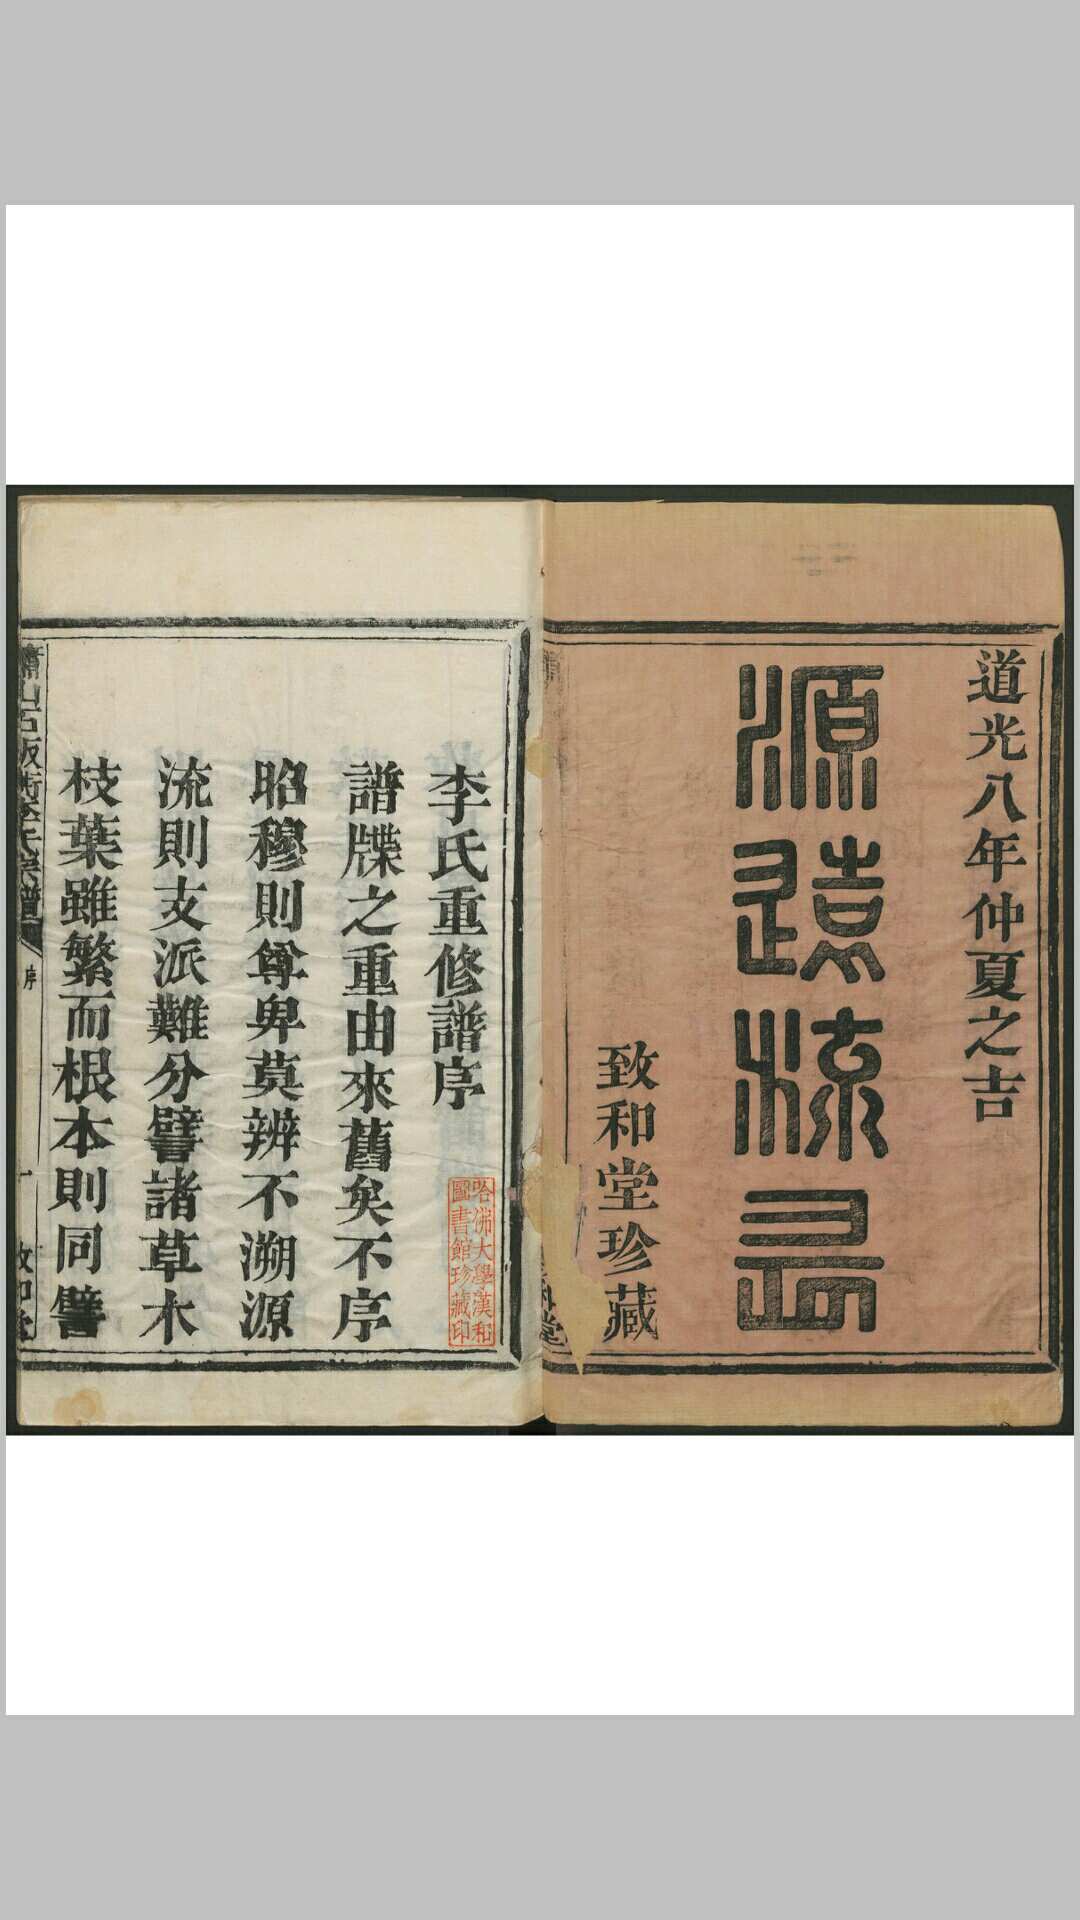 道光八年仲夏之吉
源遠流長
致和堂珍藏
李氏重修譜序
譜牒之重由來舊矣不序
昭穆則尊卑莫辨不溯源
流則支派難分譬諸草木
枝葉雖繁而根本則同譬
哈佛大學漢和
圖書館珍藏印
蕭山石板街李氏宗譜
序
一
致和堂